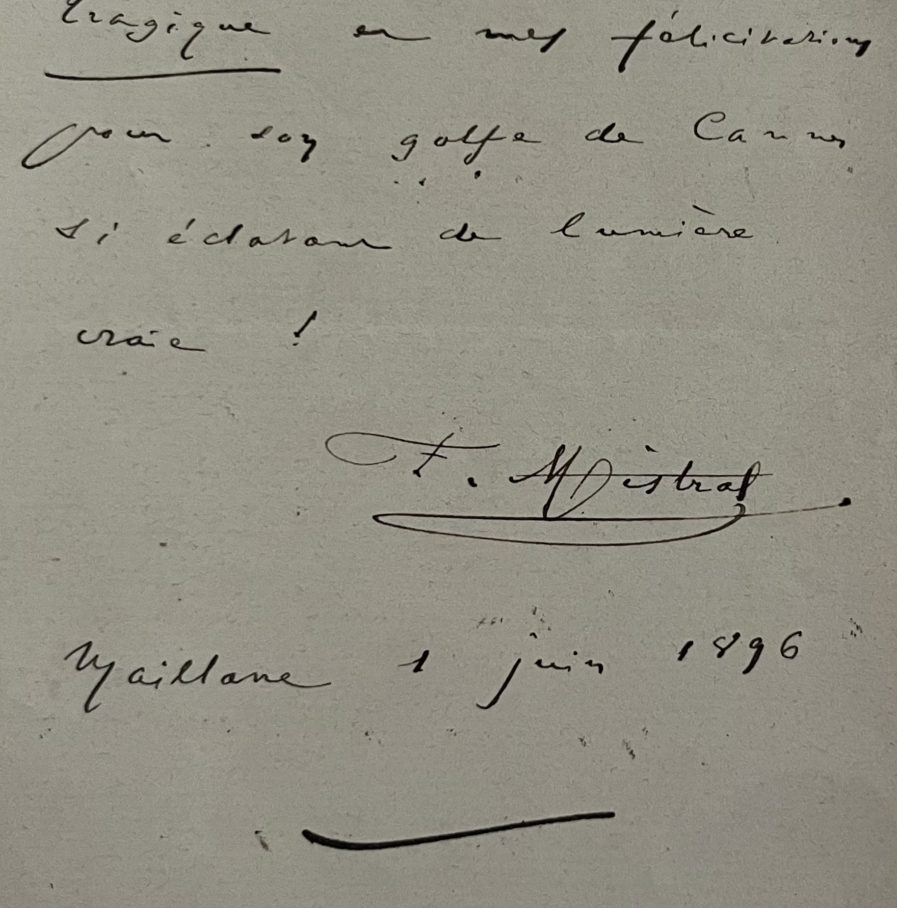 tragique et mes félicitations
pour son golfe de Cannes
si éclatant de lumière
vraie !
F. Mistral
Maillane 1 juin 1896